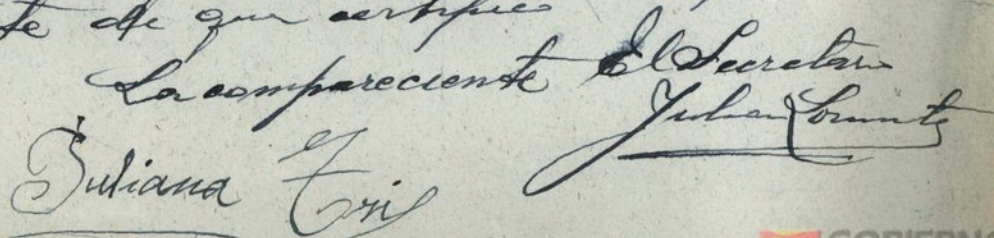 te de que certifico
La compareciente El Secretario
Julian Lorente
Juliana Gris
GOBIERNO